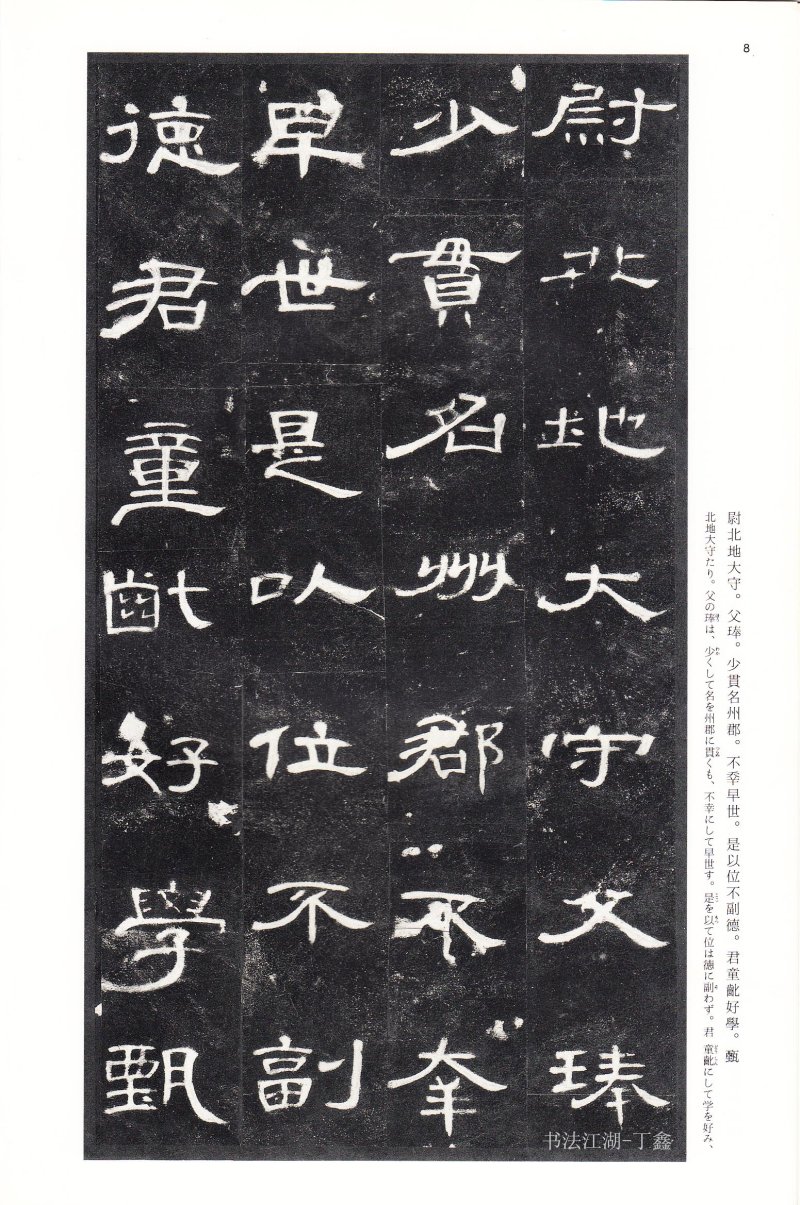 8
尉北地大守父琫
少貫名州郡不幸
早世是以位不副
德君童齔好學甄
尉北地大守。父琫。少貫名州郡。不幸早世。是以位不副德。君童齔好學。甄
北地大守たり。父の琫は、少くして名を州郡に貫くも、不幸にして早世す。是を以て位は德に副わず。君 童齔にして学を好み、
书法江湖-丁鑫